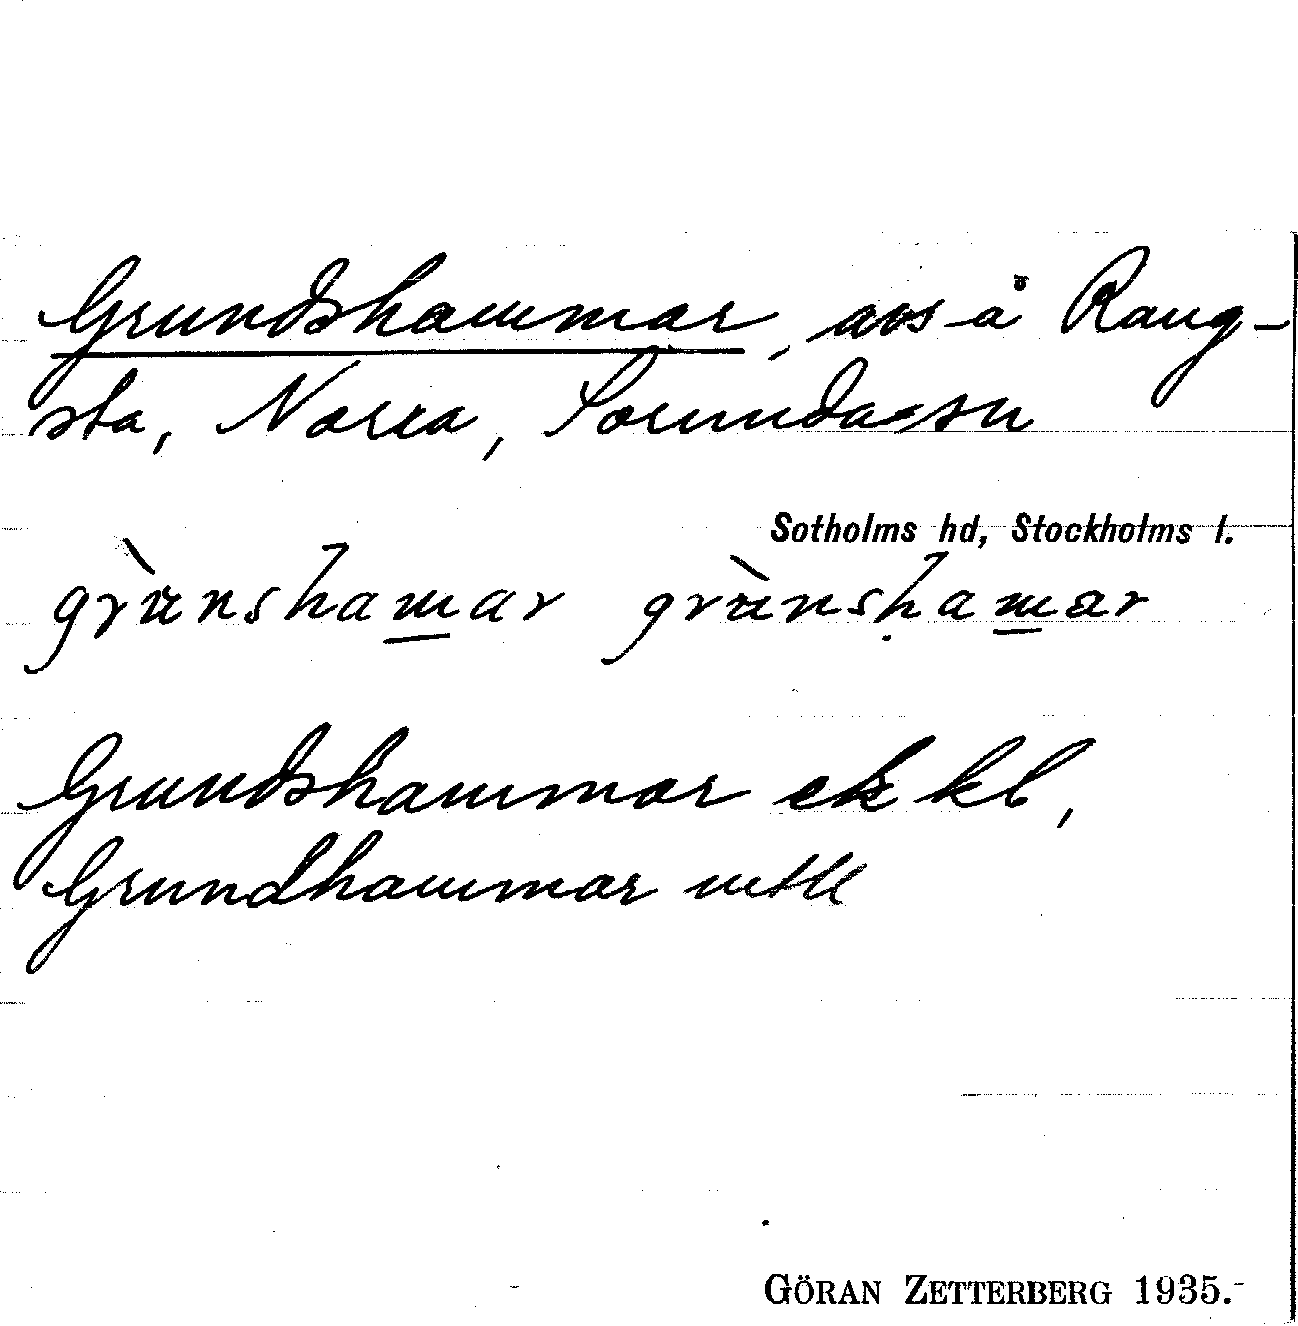 Grundshammar, avs å Rang-
sta, Norra, Sorunda sn
Sotholms hd, Stockholms l.
grùnshamar grùnshamar
Grundshammar ek kbl,
Grundhammar mtll
GÖRAN ZETTERBERG 1935.